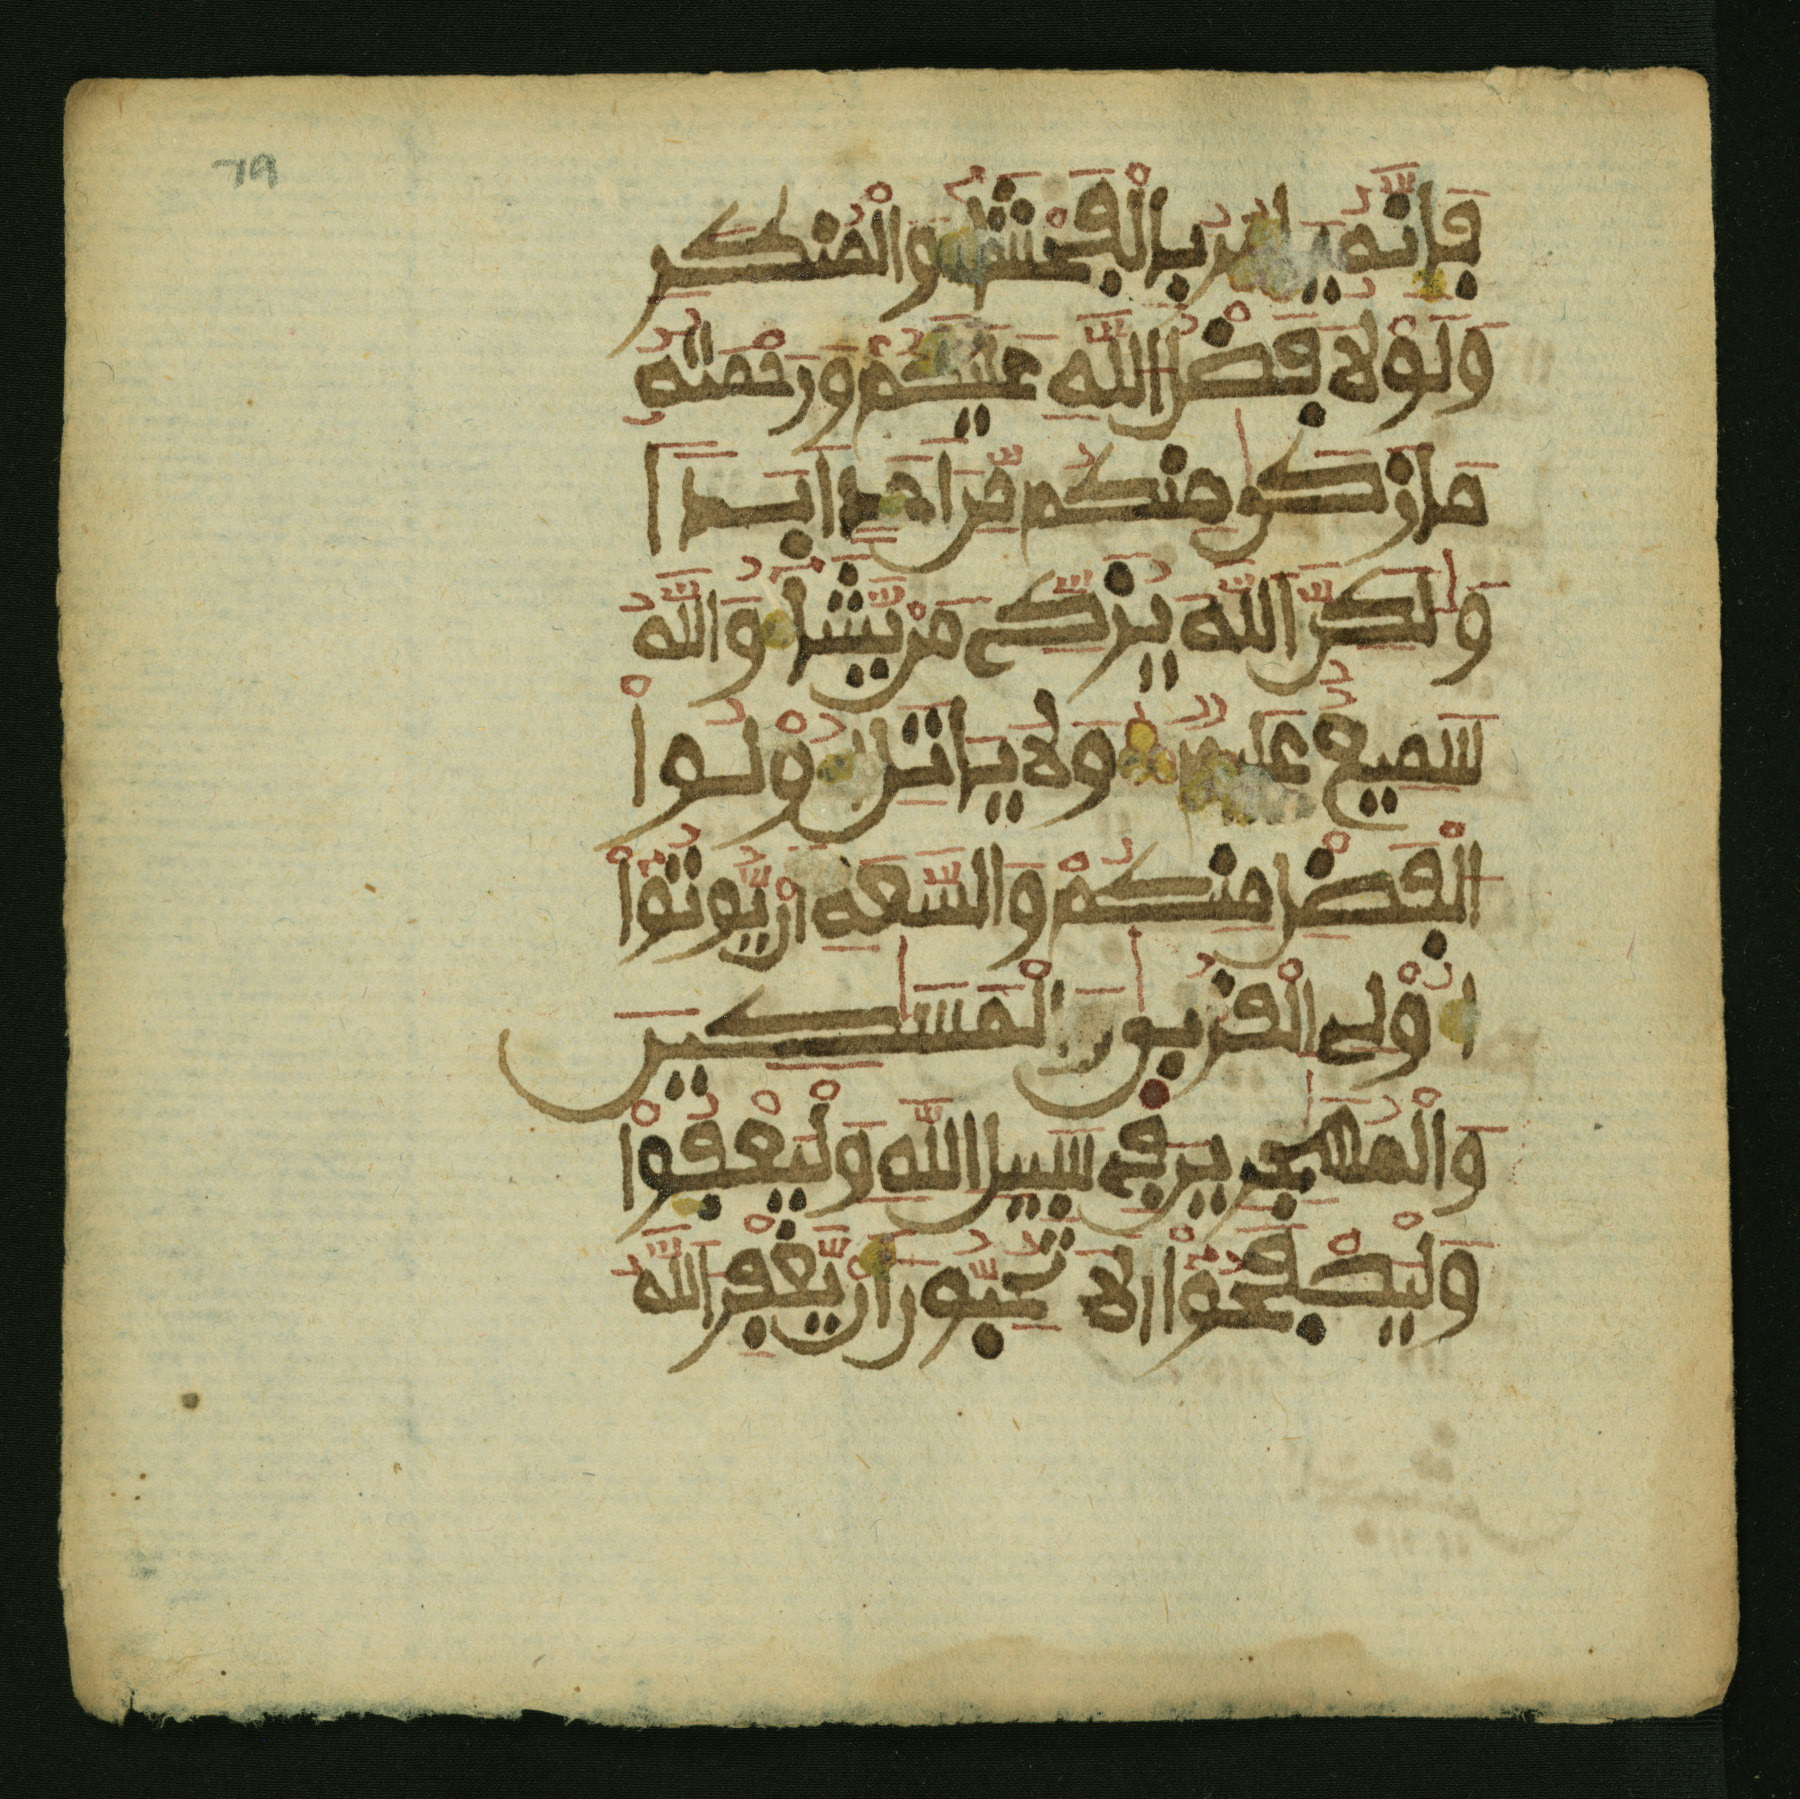 79
فَإِنَّهُۥ يَامُرُ بِالْفَحْشَآءِ وَالْمُنكَرِ
وَلَوْلَا فَضْلُ اللَّهِ عَلَيْكُمْ وَرَحْمَتُهُۥ
مَا زَكىٰ مِنكُم مِّنَ احَدٍ اَبَداٗ
وَلَٰكِنَّ اللَّهَ يُزَكِّي مَنْ يَّشَآءُ وَاللَّهُ
سَمِيعٌ عَلِيمٌ وَلَا يَاتَلِ أُوْلُواْ
الْفَضْلِ مِنكُمْ وَالسَّعَةِ أَنْ يُّوتُوٓاْ
أُوْلِي الْقُرْبىٰ وَالْمَسَٰكِينَ
وَالْمُهَٰجِرِينَ فِي سَبِيلِ اللَّهِ وَلْيَعْفُواْ
وَلْيَصْفَحُوٓاْ أَلَا تُحِبُّونَ أَنْ يَّغْفِرَ اللَّهُ